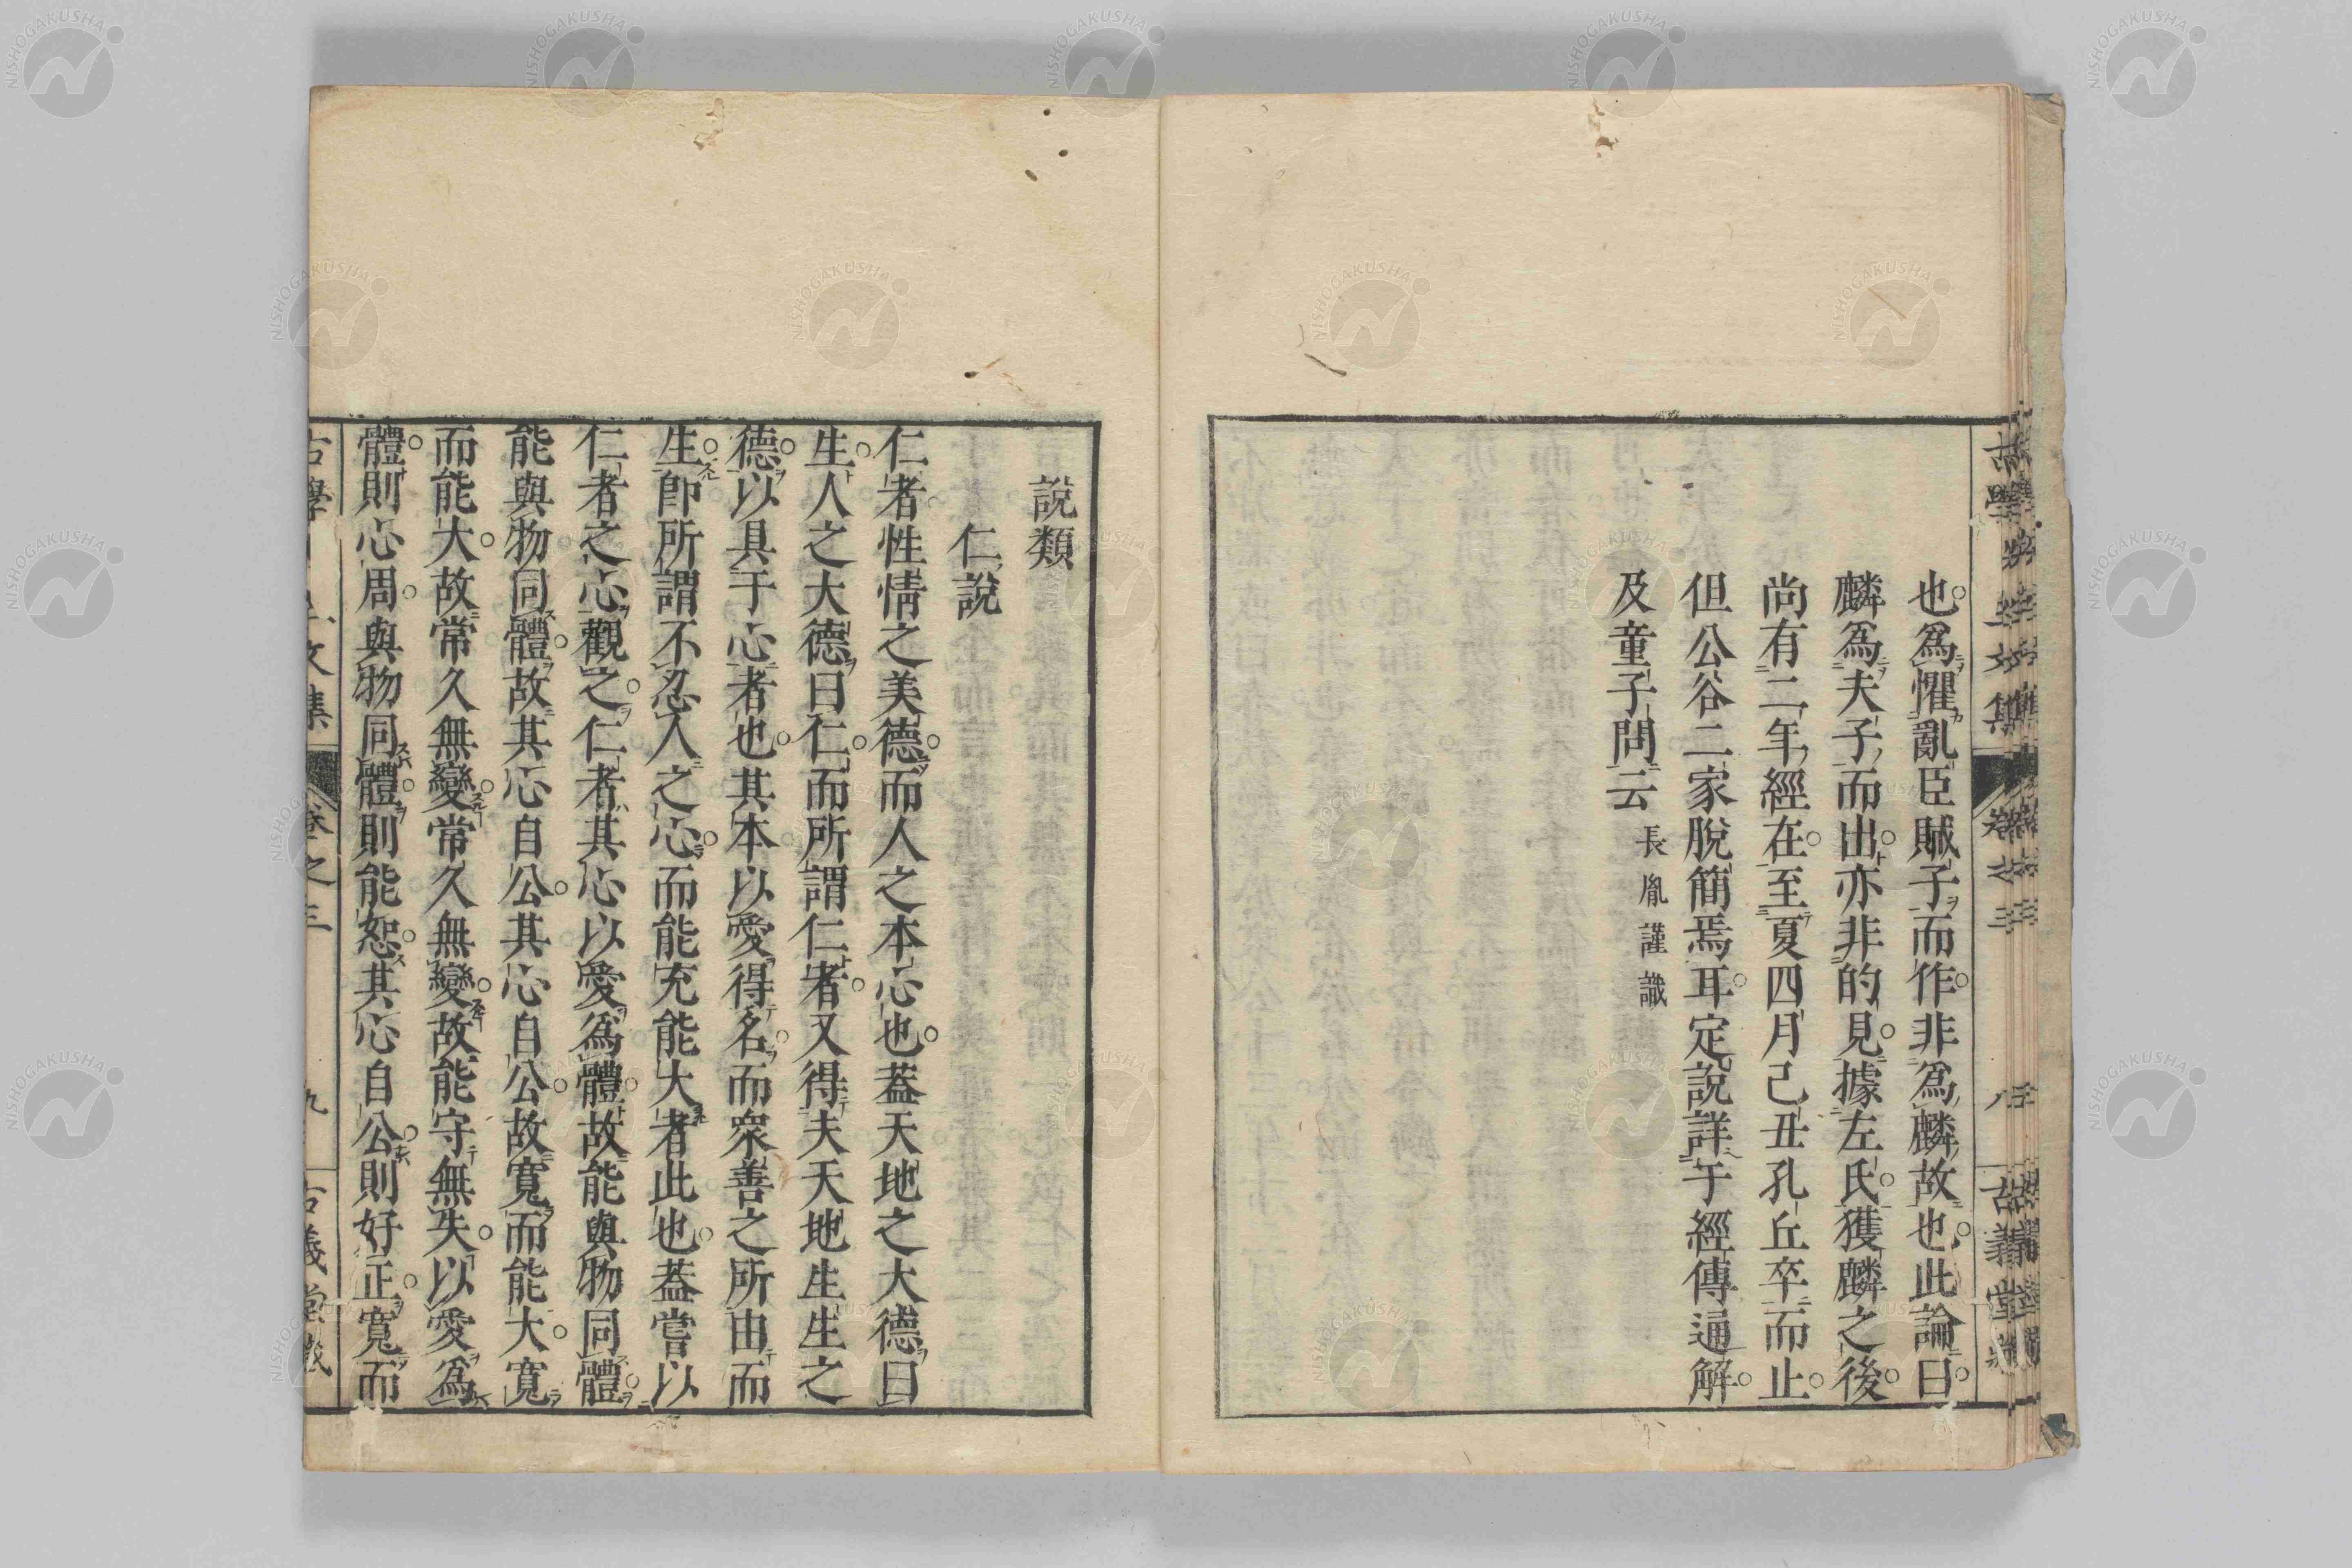 也爲懼亂臣賊子而作非爲麟故也此論曰
麟爲夫子而出亦非的見據左氏獲麟之後
尚有二年經在至夏四月己丑孔丘卒而止
但公谷二家脫簡焉耳定說詳于經傳通解
及童子問云
長胤謹識
說類
仁說
仁者性情之美德而人之本心也蓋天地之大德曰
生人之大德曰仁而所謂仁者又得夫天地生生之
德以具于心者也其本以愛得名而衆善之所由而
生卽所謂不忍人之心而能充能大者此也蓋嘗以
仁者之心觀之仁者其心以愛爲體故能與物同體
能與物同體故其心自公其心自公故寬而能大寬
而能大故常久無變常久無變故能守無失以愛爲
體則心周與物同體則能恕其心自公則好正寬而
卷之三
九
古義堂
NISHOGAKUSHA